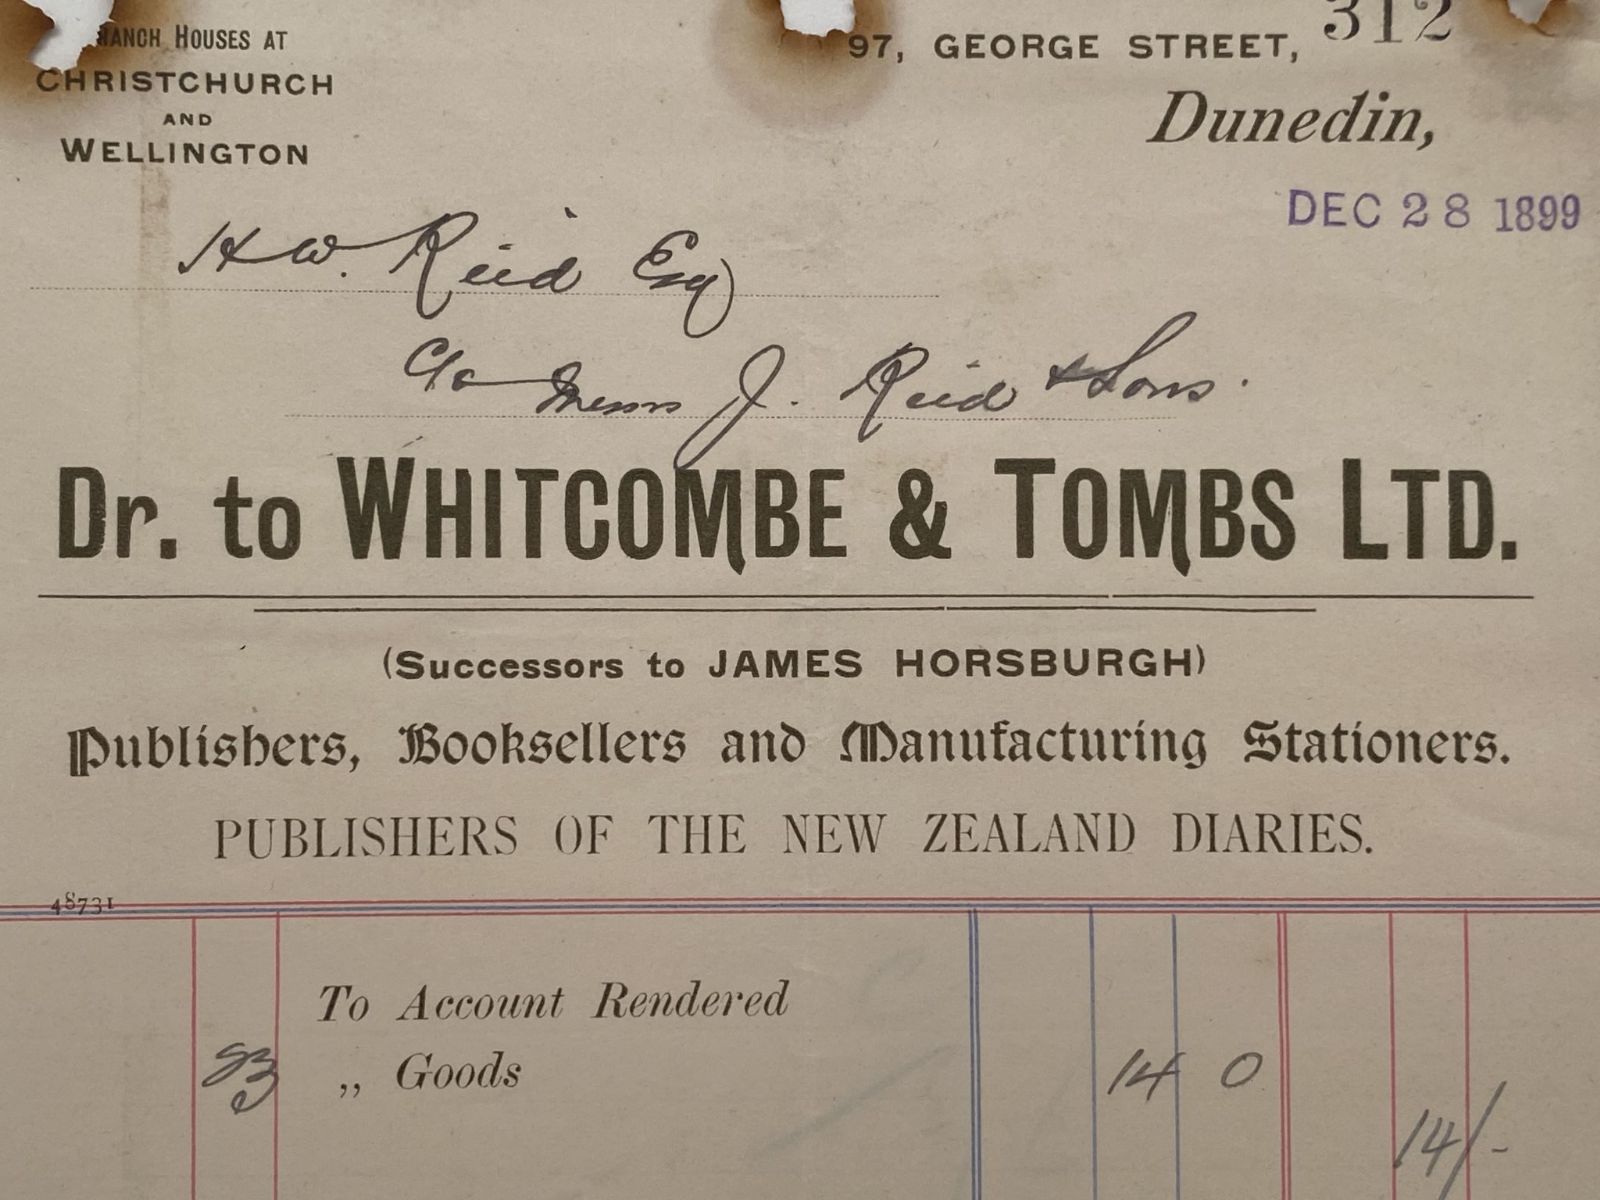 BRANCH HOUSES AT
CHRISTCHURCH
AND
WELLINGTON
312
97, GEORGE STREET,
Dunedin,
DEC 28 1899
H W. Reid Esq
C/o Messrs J. Reid & Sons.
Dr. to WHITCOMBE & TOMBS LTD.
(Successors to JAMES HORSBURGH)
Publishers, Booksellers and Manufacturing Stationers.
PUBLISHERS OF THE NEW ZEALAND DIARIES.
48731
To Account Rendered
„ Goods 14 0
14/-